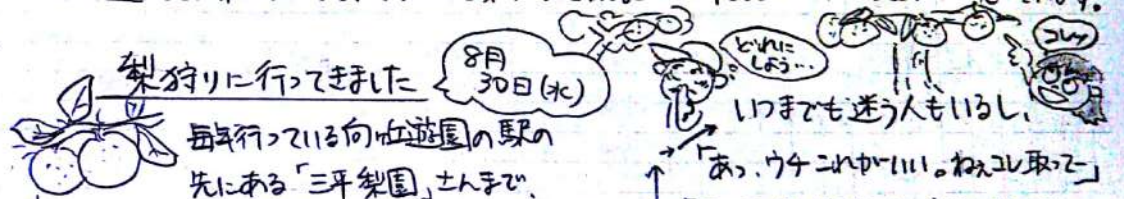 梨狩りに行ってきました
8月
30日(水)
毎年行っている向ヶ丘遊園の駅の
先にある「三平梨園」さんまで、
どれに
しよう…
コレッ
いつまでも迷う人もいるし、
「あっ、ウチこれがいい。ねぇコレ取ってー」